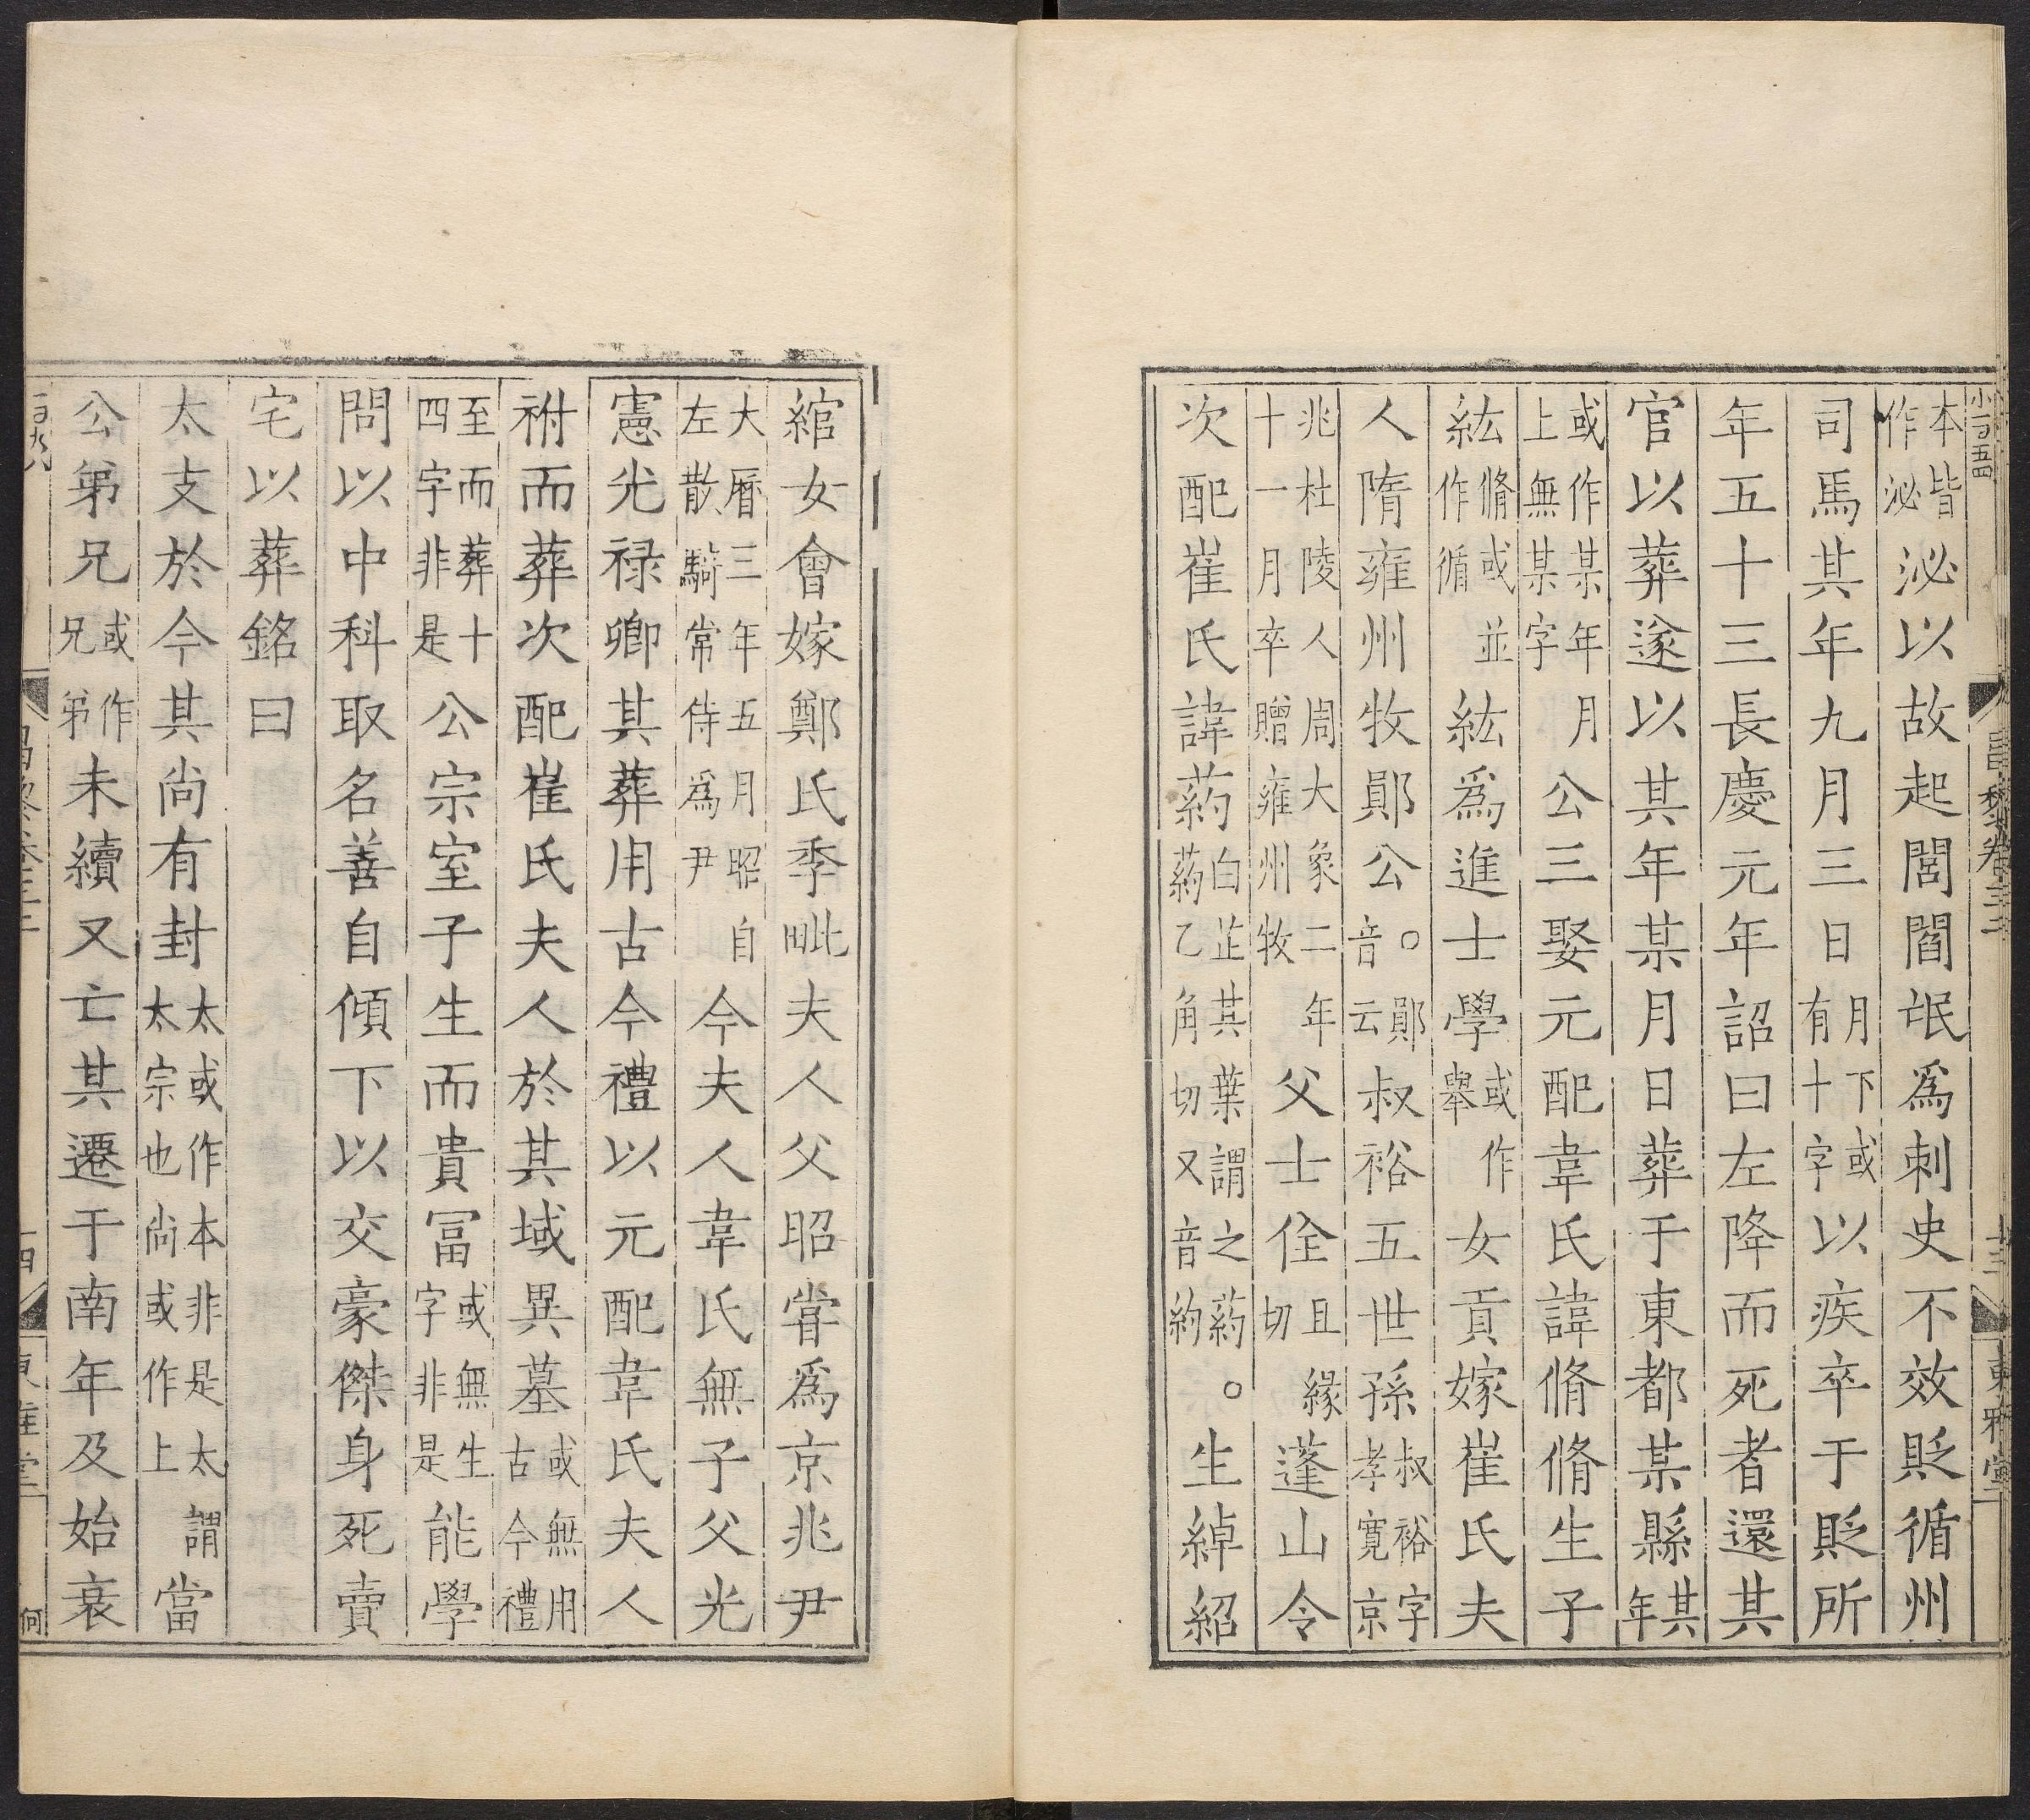 本皆作泌泌以故起閭閻氓爲刺史不效貶循州
司馬其年九月三日月下或有十字以疾卒于貶所
年五十三長慶元年詔曰左降而死者還其
官以葬遂以其年某月日葬于東都某縣其年
或作某年月上無某字公三娶元配韋氏諱脩脩生子
紘脩或並作循紘爲進士學或作舉女貢嫁崔氏夫
人隋雍州牧鄖公○鄖音云叔裕五世孫叔裕字孝寬京
兆杜陵人周大象二年十一月卒贈雍州牧父士佺且緣切蓬山令
次配崔氏諱葯白芷其葉謂之葯葯乙角切又音約○生綽紹
綰女會嫁鄭氏季毗夫人父昭嘗爲京兆尹
大曆三年五月昭自左散騎常侍爲尹今夫人韋氏無子父光
憲光禄卿其葬用古今禮以元配韋氏夫人
祔而葬次配崔氏夫人於其域異墓或無用古今禮
至而葬十四字非是公宗室子生而貴冨或無生字非是能學
問以中科取名善自傾下以交豪傑身死賣
宅以葬銘曰
太支於今其尚有封太或作本非是太謂太宗也尚或作上當
公弟兄或作兄弟未續又亡其遷于南年及始衰
昌黎卷三十三
十三
東雅堂
十四
何